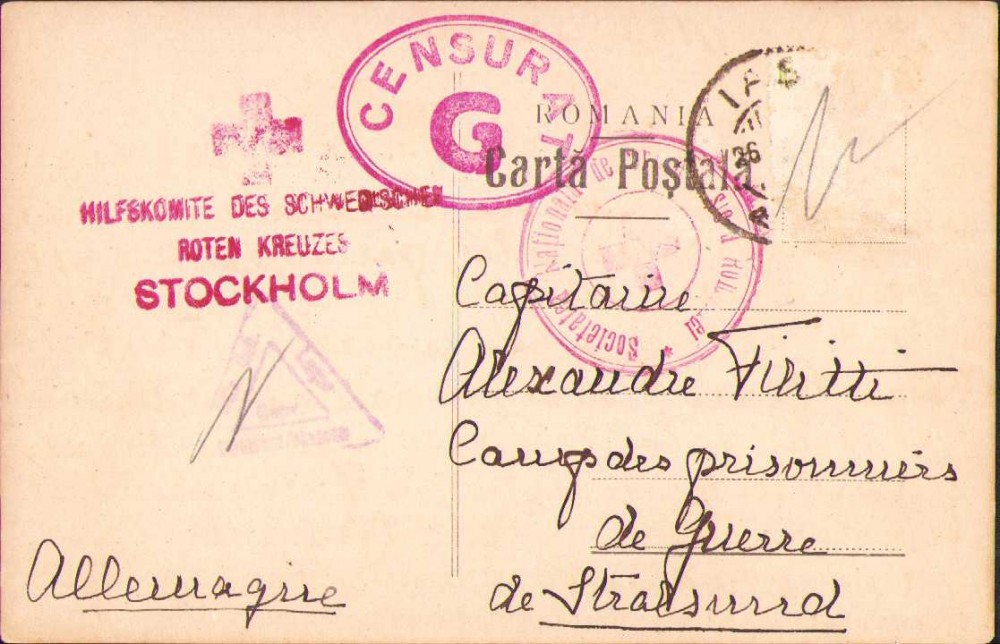 CENSURAT
G
ROMANIA
Cartă Poștală
IAȘ
26
HILFSKOMITE DES SCHWEDISCHEN
ROTEN KREUZES
STOCKHOLM
Societatea Națională de
Capitaine
Alexandre Filitti
Camp des prisonniers
de Guerre
de Stralsund
Allemagne